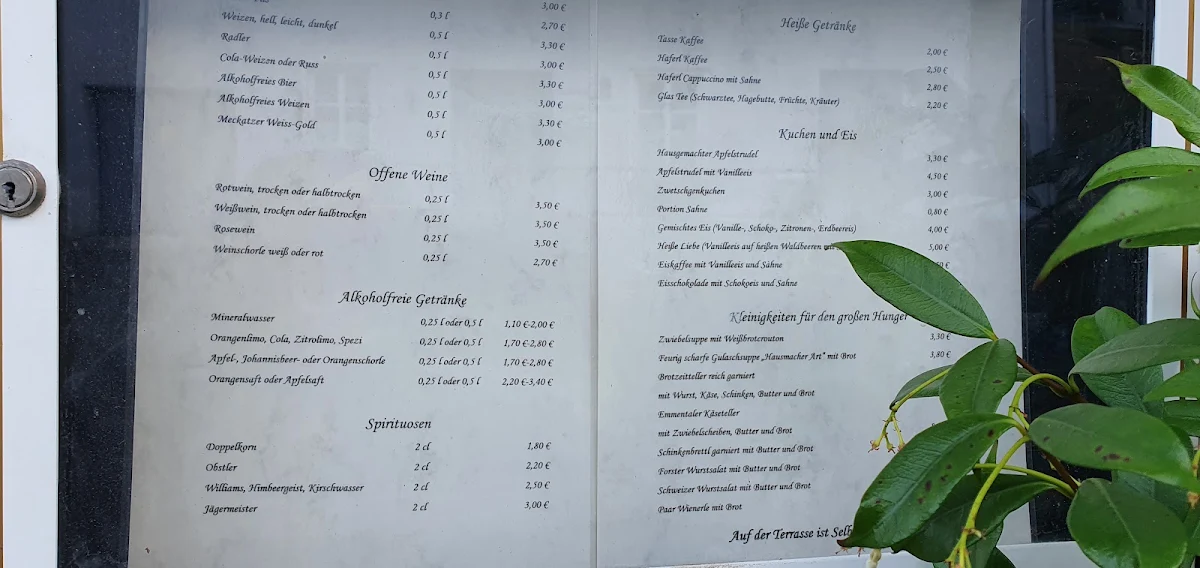 3,00 €
Weizen, hell, leicht, dunkel 0,3 l 2,70 €
Radler 0,5 l 3,30 €
Cola-Weizen oder Russ 0,5 l 3,00 €
Alkoholfreies Bier 0,5 l 3,30 €
Alkoholfreies Weizen 0,5 l 3,00 €
Meckatzer Weiss-Gold 0,5 l 3,30 €
0,5 l 3,00 €
Offene Weine
Rotwein, trocken oder halbtrocken 0,25 l 3,50 €
Weißwein, trocken oder halbtrocken 0,25 l 3,50 €
Rosewein 0,25 l 3,50 €
Weinschorle weiß oder rot 0,25 l 2,70 €
Alkoholfreie Getränke
Mineralwasser 0,25 l oder 0,5 l 1,10 €-2,00 €
Orangenlimo, Cola, Zitrolimo, Spezi 0,25 l oder 0,5 l 1,70 €-2,80 €
Apfel-, Johannisbeer- oder Orangenschorle 0,25 l oder 0,5 l 1,70 €-2,80 €
Orangensaft oder Apfelsaft 0,25 l oder 0,5 l 2,20 €-3,40 €
Spirituosen
Doppelkorn 2 cl 1,80 €
Obstler 2 cl 2,20 €
Williams, Himbeergeist, Kirschwasser 2 cl 2,50 €
Jägermeister 2 cl 3,00 €
Heiße Getränke
Tasse Kaffee 2,00 €
Haferl Kaffee 2,50 €
Haferl Cappuccino mit Sahne 2,80 €
Glas Tee (Schwarztee, Hagebutte, Früchte, Kräuter) 2,20 €
Kuchen und Eis
Hausgemachter Apfelstrudel 3,30 €
Apfelstrudel mit Vanilleeis 4,50 €
Zwetschgenkuchen 3,00 €
Portion Sahne 0,80 €
Gemischtes Eis (Vanille-, Schoko-, Zitronen-, Erdbeereis) 4,00 €
Heiße Liebe (Vanilleeis auf heißen Waldbeeren 5,00 €
Eiskaffee mit Vanilleeis und Sahne
Eisschokolade mit Schokoeis und Sahne
Kleinigkeiten für den großen Hunger
Zwiebelsuppe mit Weißbrotcrouton 3,30 €
Feurig scharfe Gulaschsuppe „Hausmacher Art" mit Brot 3,80 €
Brotzeitteller reich garniert
mit Wurst, Käse, Schinken, Butter und Brot
Emmentaler Käseteller
mit Zwiebelscheiben, Butter und Brot
Schinkenbrettl garniert mit Butter und Brot
Forster Wurstsalat mit Butter und Brot
Schweizer Wurstsalat mit Butter und Brot
Paar Wienerle mit Brot
Auf der Terrasse ist